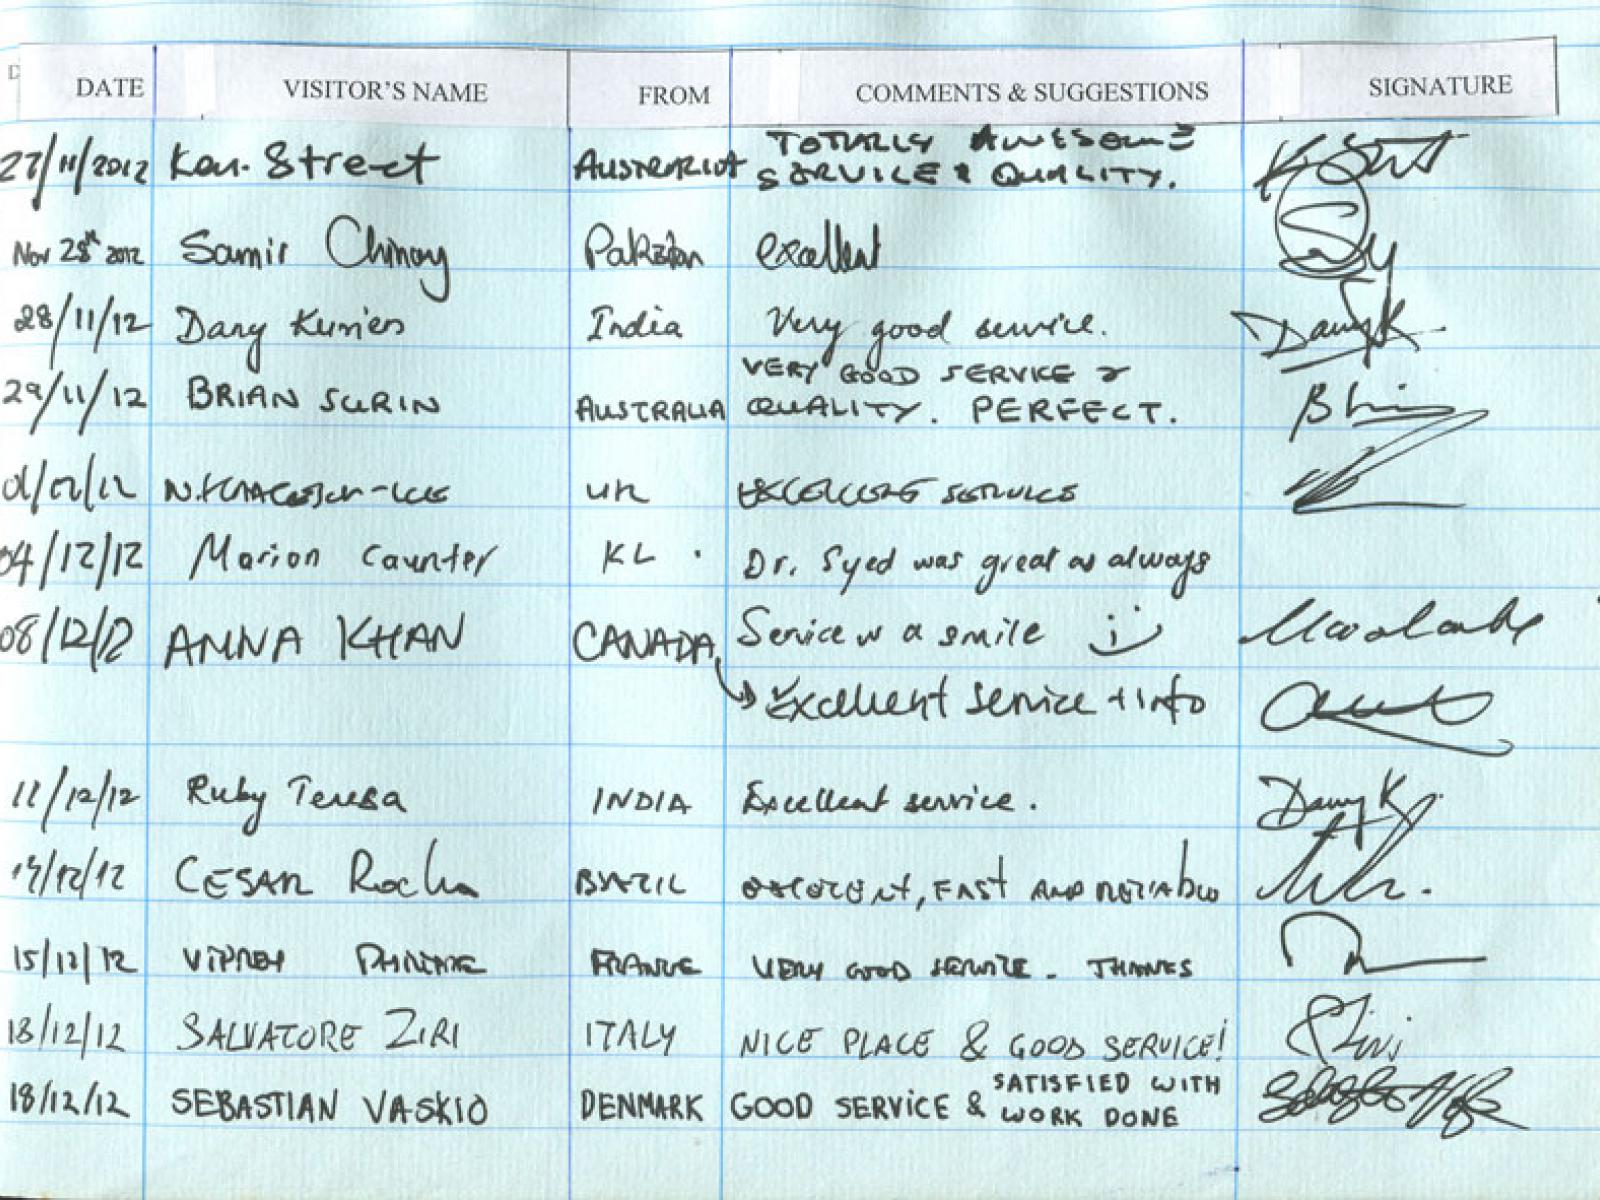 DATE VISITOR'S NAME FROM COMMENTS & SUGGESTIONS SIGNATURE
TOTALLY AWESOME
27/11/2012 Ken. Street AUSTRALIA SERVICE & QUALITY.
Nov 28th 2012 Samir Chinoy Pakistan excellent
28/11/12 Dany Kurien India Very good service.
VERY GOOD SERVICE &
29/11/12 BRIAN SURIN AUSTRALIA QUALITY. PERFECT.
UK SERVICE
04/12/12 Marion Caunter KL. Dr. Syed was great as always
08/12/12 ANNA KHAN CANADA Service w a smile :)
Excellent service + info
11/12/12 Ruby Teresa INDIA Excellent service. Dany K
12/12 CESAR Rocha BRAZIL EXCELENT, FAST AND RELIABLE
15/12/12 FRANCE VERY GOOD SERVICE. THANKS
18/12/12 SALVATORE ZIRI ITALY NICE PLACE & GOOD SERVICE!
SATISFIED WITH
18/12/12 SEBASTIAN VASKIO DENMARK GOOD SERVICE & WORK DONE